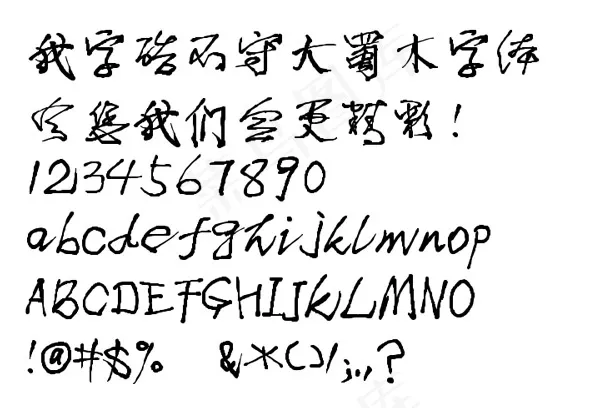 我字酷不守大蜀木字体
字隽我们会更精彩！
1234567890
abcdefghijklmnop
ABCDEFGHIJKLMNO
!@#$%  &*()/;.,?